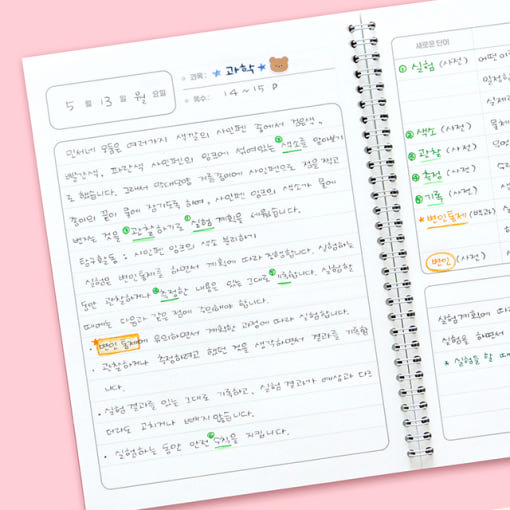 5 월 13 일 월 요일
과목: ★ 과학 ★
쪽수: 14 ~ 15 P
민서네 모둠은 여러가지 색깔의 사인펜 중에서 검은색,
빨간색, 파란색 사인펜의 잉크에 섞여있는 ②색소를 알아보기
로 했습니다. 그래서 막대모양 거름종이에 사인펜으로 점을 찍고
종이의 끝이 물에 잠기도록 하여, 사인펜 잉크의 색소가 물에
번지는 것을 ③관찰하기로 ①실험 계획을 세웠습니다.
탐구활동 : 사인펜 잉크의 색소 분리하기
실험은 변인통제를 하면서 계획에 따라 진행합니다. 실험하는
동안 관찰하거나 ④측정한 내용은 있는 그대로 ⑤기록합니다. 실험할
때에는 다음과 같은 점에 주의해야 합니다.
• ★변인통제에 유의하면서 계획한 과정에 따라 실험합니다.
• 관찰하거나 측정하려고 했던 것을 생각하면서 결과를 기록합
니다.
• 실험 결과를 있는 그대로 기록하고, 실험 결과가 예상과 다르
더라도 고치거나 빼지 않습니다.
• 실험하는 동안 안전 ⑥수칙을 지킵니다.
새로운 단어
① 실험 (사전) 어떤
② 색소 (사전) 물체
③ 관찰 (사전)
④ 측정 (사전)
⑤ 기록 (사전)
★ 변인통제 (백과)
변인 (사전)
실험계획에 따라
실험을 하면서
★ 실험을 할 때